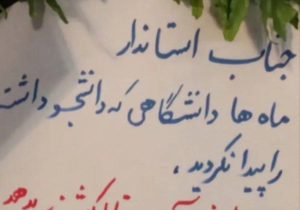 جناب استاندار
ماه ها دانشگاهی که دانشجو داشت
را پیدا نکردید .